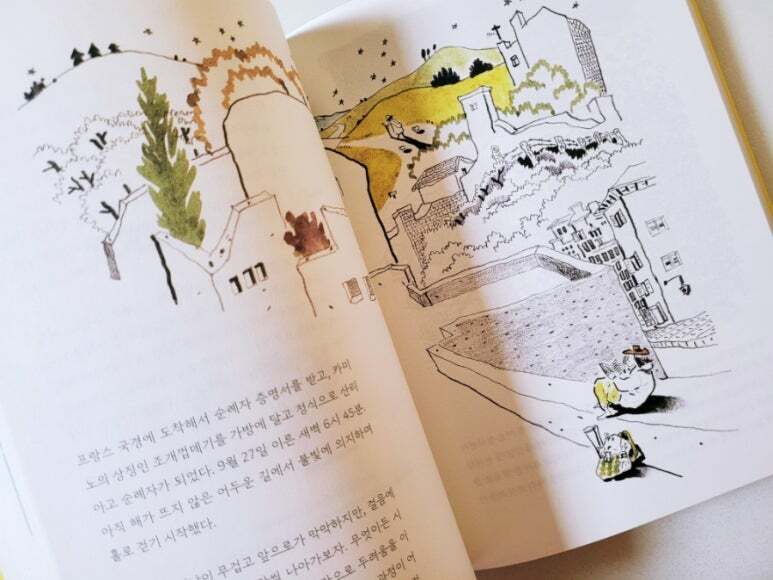 프랑스 국경에 도착해서 순례자 증명서를 받고, 카미
노의 상징인 조개껍데기를 가방에 달고 정식으로 산티
아고 순례자가 되었다. 9월 27일 이른 새벽 6시 45분.
아직 해가 뜨지 않은 어두운 길에서 불빛에 의지하여
홀로 걷기 시작했다.
무겁고 앞으로가 막막하지만, 걸음에
나아가보자. 무엇이든 시
으로 두려움을 이
과정이 어